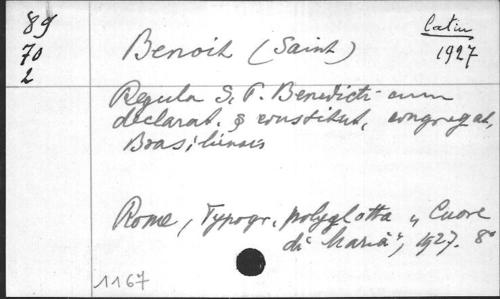 89
70
2
Latin
1927
Benoit (Saint)
Regula S. P. Benedicti cum
declarat. & constitut. congregat.
Brasiliensis
Rome, Typogr. polyglotta "Cuore
di Maria", 1927. 8°
1167